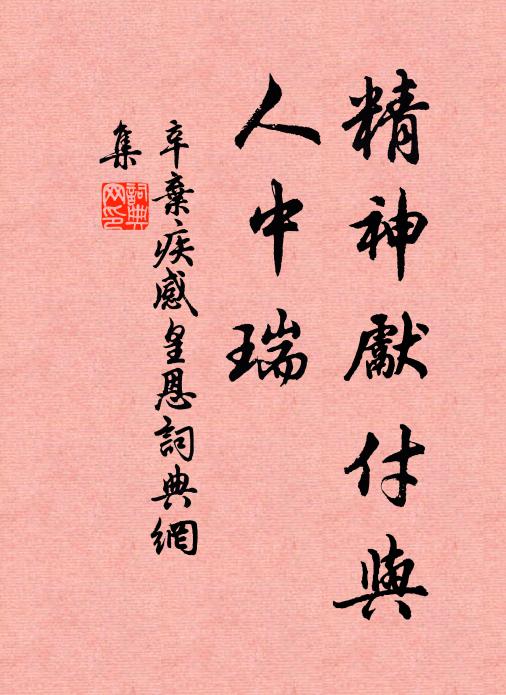 精神獻付與
人中瑞
辛棄疾感皇恩詞典網
集
詞典
网印